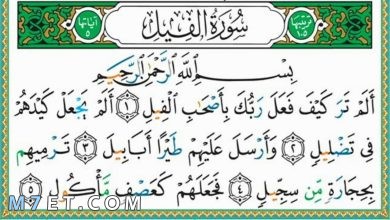 ترتيبها ١٠٥ سُورَةُ الْفِيلِ آياتها ٥
بِسْمِ اللَّهِ الرَّحْمَٰنِ الرَّحِيمِ
أَلَمْ تَرَ كَيْفَ فَعَلَ رَبُّكَ بِأَصْحَابِ الْفِيلِ ١ أَلَمْ يَجْعَلْ كَيْدَهُمْ
فِي تَضْلِيلٍ ٢ وَأَرْسَلَ عَلَيْهِمْ طَيْرًا أَبَابِيلَ ٣ تَرْمِيهِم
بِحِجَارَةٍ مِّن سِجِّيلٍ ٤ فَجَعَلَهُمْ كَعَصْفٍ مَّأْكُولٍ ٥
M7ET.COM